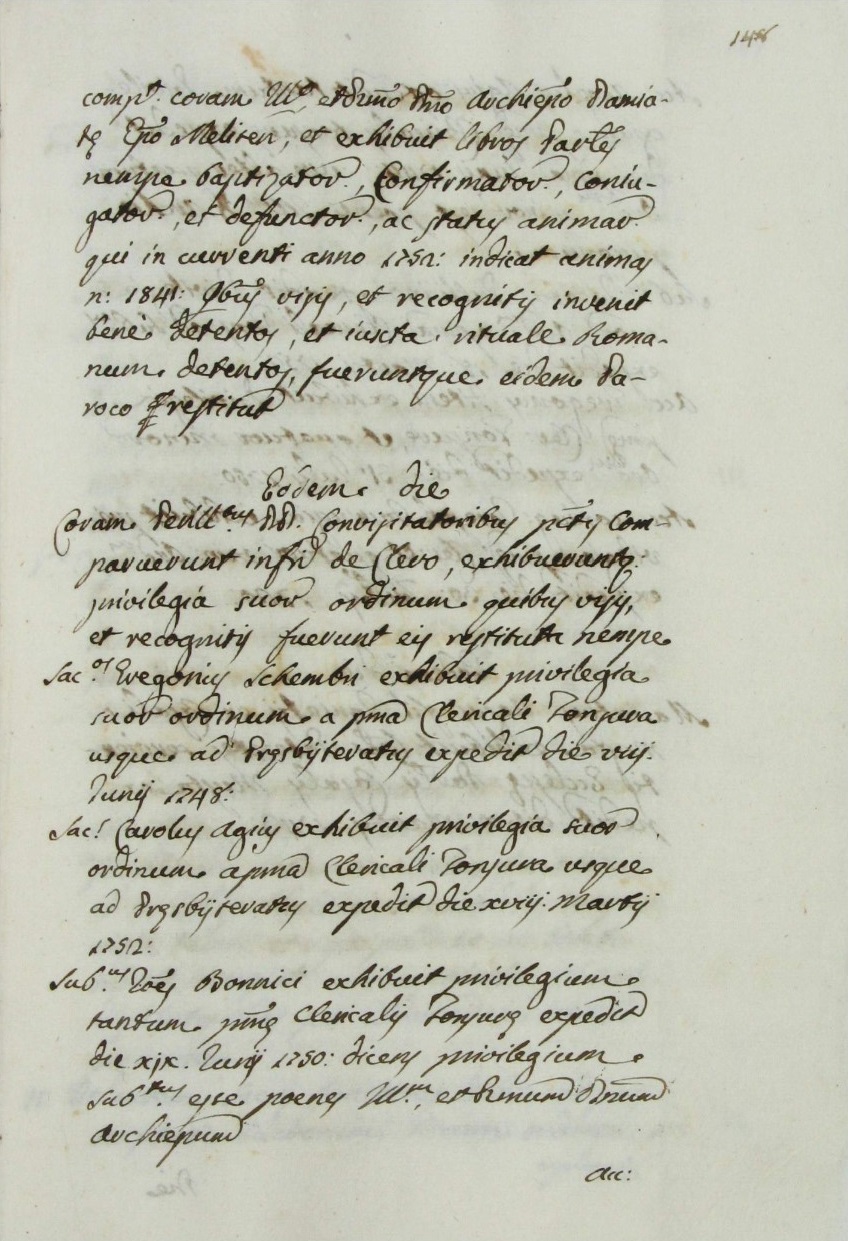 148
comp.t coram Ill.o et Rmo Dno Archiepo Damia-
tę Epo Meliten, et exhibuit libros Parles
nempe baptizator., Confirmator., coniu-
gator., et defunctor., ac status animar.
qui in currenti anno 1752: indicat animas
n: 1841: Qbus visis, et recognitis invenit
bene detentos, et iuxta rituale Roma-
num detentos, fueruntque eidem Pa-
roco restitut
Eodem die
Coram Perill.bus DD. Convisitatoribus pctis Com-
paruerunt infri de Clero, exhibuerunt
privilegia suor ordinum quibus visis,
et recognitis fuerunt eis restituta nempe
Sac.os Gregorius Schembri exhibuit privilegia
suor ordinum a pma Clericali Tonsura
usque ad Pręsbyteratus expedit die viij.
Junij 1748:
Sac.s Carolus Agius exhibuit privilegia suor
ordinum a pma Clericali Tonsura usque
ad Pręsbyteratus expedit die xviij. Martij
1752:
Sub.us Joes Bonnici exhibuit privilegium
tantum pmę Clericalis Tonsurę expedit
die xjx. Junij 1750: dicens privilegium
Sub.tus esse poenes Ill.m, et Rmum Dnum
Archiepum